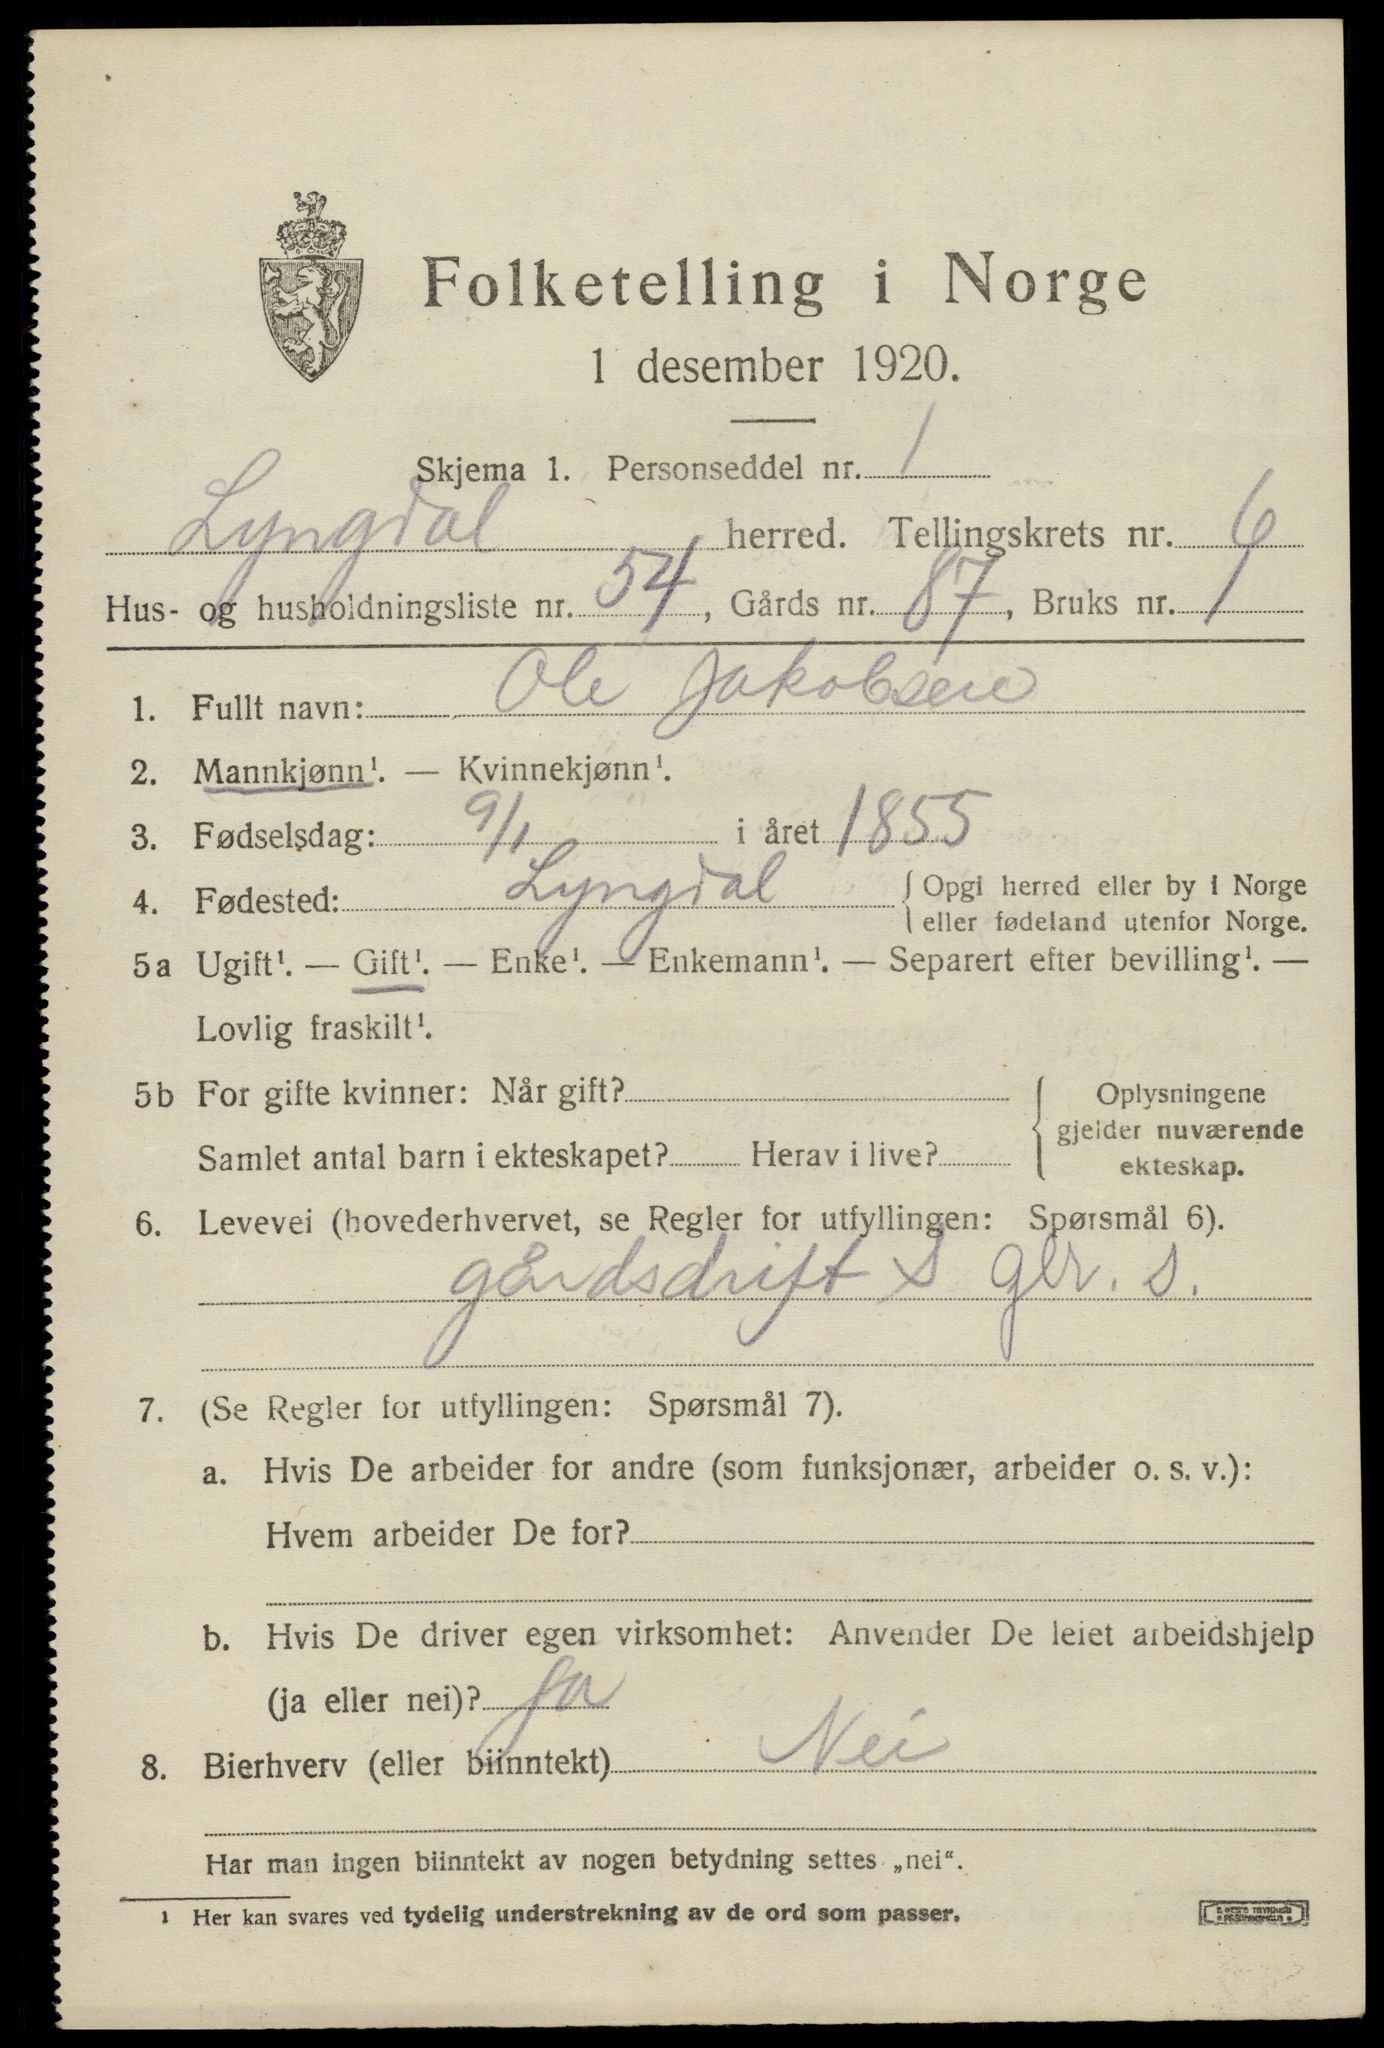 Folketelling i Norge
1 desember 1920.
Skjema 1. Personseddel nr. 1
Lyngdal herred. Tellingskrets nr. 6
Hus- og husholdningsliste nr. 54, Gårds nr. 87, Bruks nr. 1
1. Fullt navn: Ole Jakobsen
2. Mannkjønn¹. — Kvinnekjønn¹.
3. Fødselsdag: 9/1 i året 1855
4. Fødested: Lyngdal { Opgi herred eller by i Norge
eller fødeland utenfor Norge.
5a Ugift¹. — Gift¹. — Enke¹. — Enkemann¹. — Separert efter bevilling¹. —
Lovlig fraskilt¹.
5b For gifte kvinner: Når gift? { Oplysningene
gjelder nuværende
Samlet antal barn i ekteskapet? Herav i live? ekteskap.
6. Levevei (hovederhvervet, se Regler for utfyllingen: Spørsmål 6).
gårdsdrift S gbr. s.
7. (Se Regler for utfyllingen: Spørsmål 7).
a. Hvis De arbeider for andre (som funksjonær, arbeider o. s. v.):
Hvem arbeider De for?
b. Hvis De driver egen virksomhet: Anvender De leiet arbeidshjelp
(ja eller nei)? Ja
8. Bierhverv (eller biinntekt) Nei
Har man ingen biinntekt av nogen betydning settes „nei“.
1 Her kan svares ved tydelig understrekning av de ord som passer.